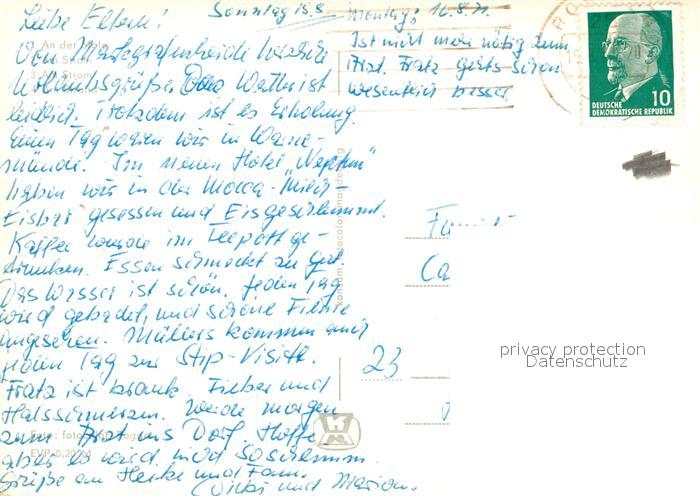 Liebe Eltern! Sonntag 15.8.
Von Markgrafenheide herzliche
Urlaubsgrüße. Das Wetter ist
leidlich. Trotzdem ist es Erholung.
Einen Tag waren wir in Warne-
münde. Im neuen Hotel „Neptun"
haben wir in der Mocca-Milch-
Eisbar gesessen und Eis geschlemmt.
Kaffee wurde im Teepott ge-
trunken. Essen schmeckt zu gut.
Das Wasser ist schön. Jeden Tag
wird gebadet, und schöne Filme
angesehen. Müllers kommen auch
jeden Tag zur Stip-Visite.
Fratz ist krank. Fieber und
Halsschmerzen. Werde morgen
zum Arzt ins Dorf. Hoffe
aber es wird nicht so schlimm.
Grüße an Heike und Fam.
und Marion.
Montag, 16.8.71
Ist nicht mehr nötig zum
Arzt. Fratz gehts schon
wesentlich besser
An der
Strom
Foto:
EVP 0,20 M
DEUTSCHE
DEMOKRATISCHE REPUBLIK
10
Fam
Ca
23
privacy protection
Datenschutz